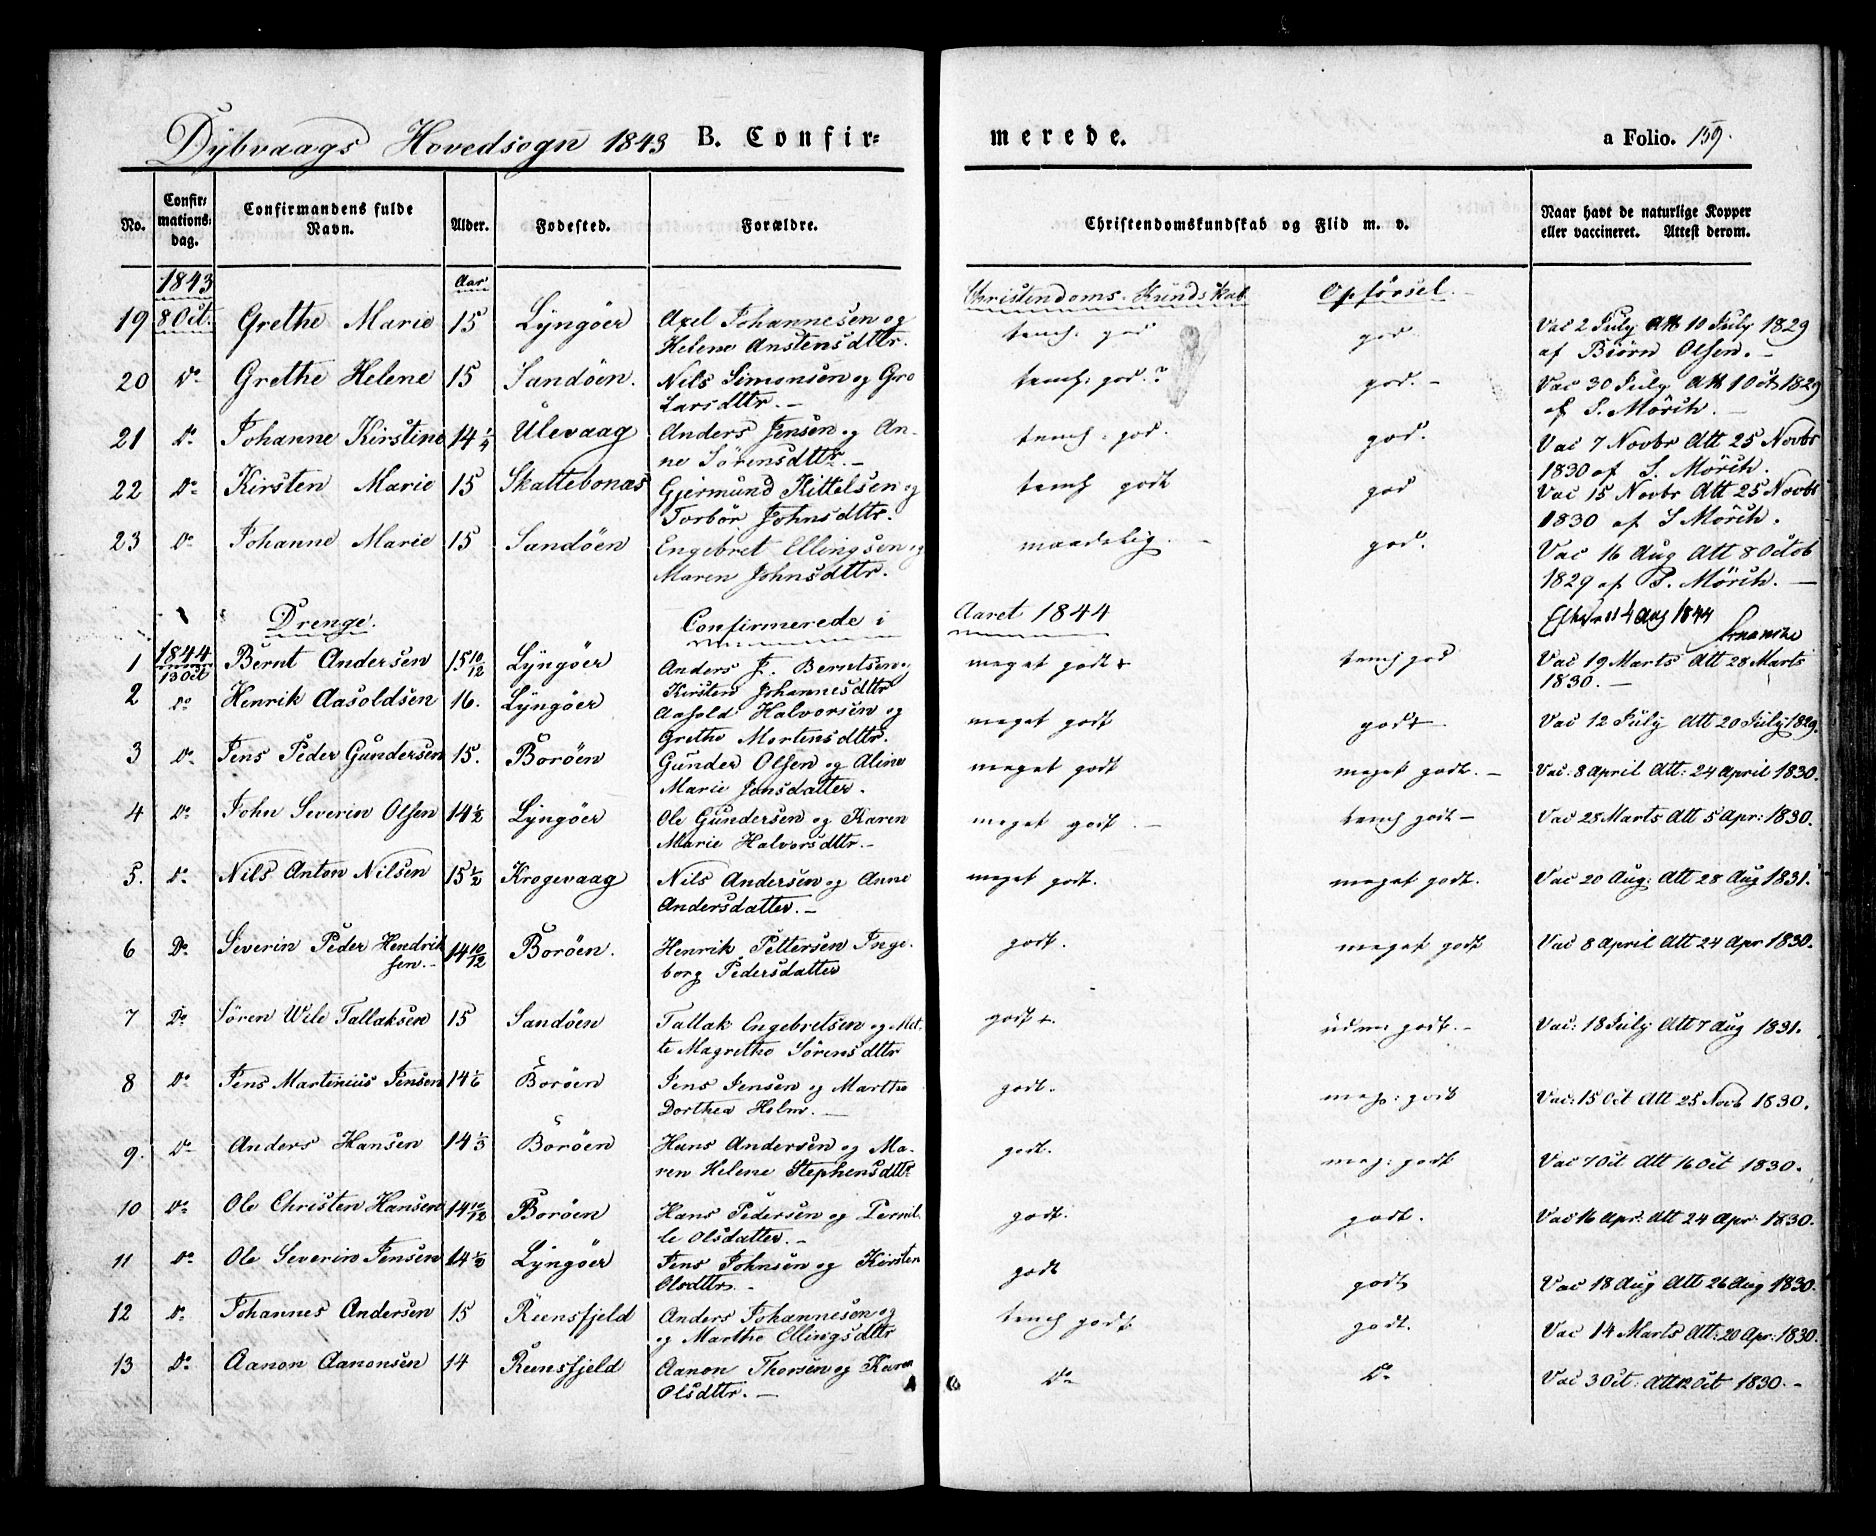 Dybvaags Hovedsogn 1843 B. Confirmerede. a Folio. 159.
No. Confirmationsdag. Confirmandens fulde Navn. Alder. Fødested. Forældre. Christendomskundskab og Flid m. v. Naar havt de naturlige Kopper eller vaccineret. Attest derom.
1843 Aar Christendoms-Kundskab Opførsel.
19 8 Oct. Grethe Marie 15 Lyngöer Axel Johannesen og temh. god god Vac 2 July Att 10 July 1829
Helene Anstensdttr. af Biörn Olsen.
20 Do Grethe Helene 15 Sandöen. Nils Simonsen og Gro temh: god.? god. Vac 30 July Att 1 Oct 1829
Larsdttr. af S. Mörch.
21 Do Johanne Kirstine 14 1/4 Ulevaag Anders Jensen og An- temh: god. god. Vac 7 Novbr Att 25 Novbr
ne Sörensdttr. 1830 af S. Mörch.
22 Do Kirsten Marie 15 Skattebonæs Gjermund Kittelsen og temh godt god Vac 15 Novbr Att 25 Novbr
Torbör Johnsdttr. 1830 af S Mörch.
23 Do Johanne Marie 15 Sandöen Engebret Ellingsen og maadelig. god. Vac 16 Aug Att 8 Octob
Maren Johnsdttr. 1829 af S. Mörch.
Drenge. Confirmerede i Aaret 1844 4 Aug 1844
1 1844 13 Oct Bernt Andersen 15 10/12 Lyngöer Anders J. Berntsen og meget godt + temh god Vac 19 Marts Att 28 Marts
Kirsten Johannesdttr 1830.
2 Do Henrik Aasoldsen 16. Lyngöer Aasold Halvorsen og meget godt godt Vac 12 July Att 20 July 1829.
Grethe Mortensdttr.
3 Do Jens Peder Gundersen 15. Boröen Gunder Olsen og Aline meget godt meget godt. Vac. 8 April Att: 24 April 1830.
Marie Jonsdatter.
4 Do John Severin Olsen 14 1/2 Lyngöer Ole Gundersen og Karen meget godt. temh godt Vac 28 Marts Att 5 Apr: 1830.
Marie Halvorsdttr.
5. Do Nils Anton Nilsen 15 1/2 Krogevaag Nils Andersen og Anne meget godt. meget godt. Vac 20 Aug: Att 28 Aug 1831.
Andersdatter.
6 Do Severin Peder Hendrik 14 10/12 Boröen. Henrik Pettersen Inge- godt. meget godt Vac 8 April Att 24 Apr 1830.
sen. borg Pedersdatter
7 Do Sören Wile Tallaksen 15 Sandöen Tallak Engebretsen og Met- godt +. udm: godt. Vac: 18 July Att 7 Aug 1831.
te Magrethe Sörensdttr
8 Do Jens Martinius Jensen 14 1/6 Boröen Jens Jensen og Marthe godt. meg: godt Vac: 15 Oct Att 25 Novb 1830.
Dorthea Holm.
9. Do Anders Hansen 14 1/3 Boröen Hans Andersen og Ma- godt. meg: godt Vac 7 Oct Att 16 Oct 1830.
ren Helene Stephensdttr
10 Do Ole Christen Hansen 14 10/12 Boröen Hans Pedersen og Pernil- godt. godt. Vac 16 Apr: Att 24 Apr: 1830.
le Olsdatter.
11 Do Ole Severin Jensen 14 1/2 Lyngöer Jens Johnsen og Kirsten godt godt Vac 18 Aug Att 26 Aug 1830.
Olsdttr.
12 Do Johannes Andersen 15 Reensfjeld Anders Johannesen og temh godt godt. Vac 14 Marts Att: 20 Apr: 1830.
og Marthe Ellingsdttr
13 Do Aanon Aanonsen 14 Reensfjeld Aanon Thorsen og Karen Do Do Vac 3 Oct: Att 12 Oct 1830.
Olsdttr.